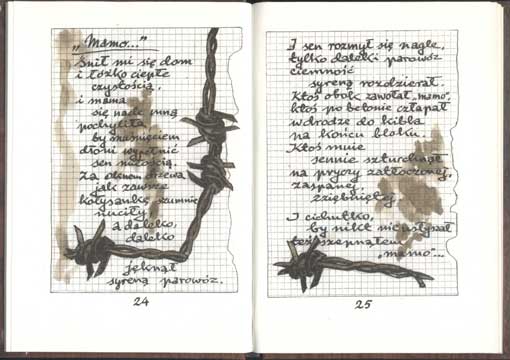 „Mamo..."
Śnił mi się dom
i łóżko ciepłe
czystością,
i mama
się nade mną
pochyliła,
by muśnięciem
dłoni wypełnić
sen miłością.
Za oknem drzewa
jak zawsze
kołysankę szumnie
nuciły,
a daleko,
daleko
jęknął
syreną parowóz.
24
I sen rozmył się nagle,
tylko daleki parowóz
ciemność
syreną rozdzierał.
Ktoś obok zawołał „mamo",
ktoś po betonie człapał
w drodze do kibla
na końcu bloku.
Ktoś mnie
sennie szturchnął
na pryczy zatłoczonej,
zaspanej,
zziębniętej.
I cichutko,
by nikt nie usłyszał
też szepnąłem
„mamo"...
25